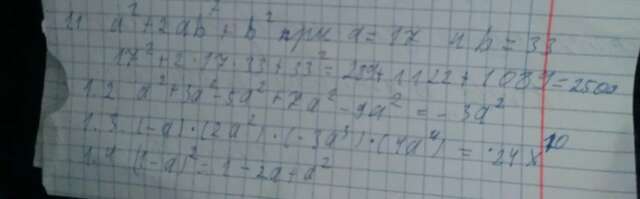 11 a² + 2ab² + b² при a = 17 и b = 33
17² + 2·17·33 + 33² = 289 + 1122 + 1089 = 2500
1.2 a² + 3a² - 5a² + 7a² - 9a² = -3a²
1.3. (-a)·(2a²)·(-3a³)·(4a⁴) = 24x¹⁰
1.4 (1-a)² = 1 - 2a + a²